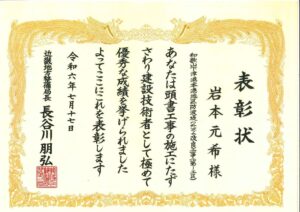 表彰状
岩本元希様
あなたは頭書工事の施工にたず
さわり建設技術者として極めて
優秀な成績を挙げられました
よってここにこれを表彰します
令和六年七月十七日
近畿地方整備局長
長谷川朋弘